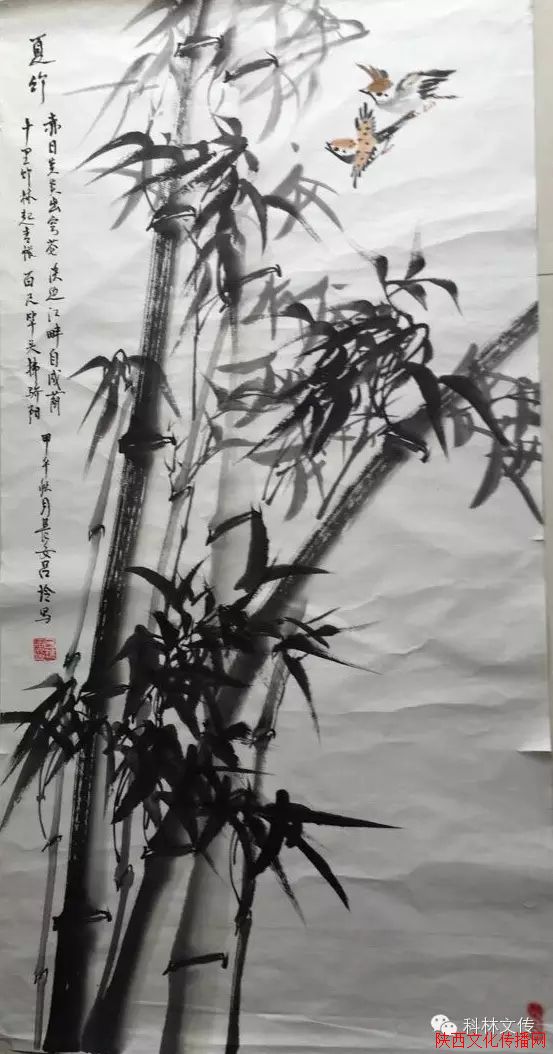 夏竹
赤日炎炎出穹苍 溪边江畔自成荫
十里竹林起青 百尺竿头拂骄阳
甲午秋月長安吕玲写
科林文传
陕西文化传播网